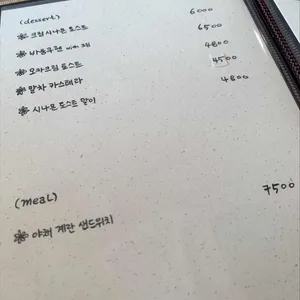 (dessert)
크림 시나몬 토스트 6000
바움쿠헨 with 크림 6500
모카크림 토스트 4800
말차 카스테라 4500
시나몬 토스트 말이 4800
(meal)
야채 계란 샌드위치 7500